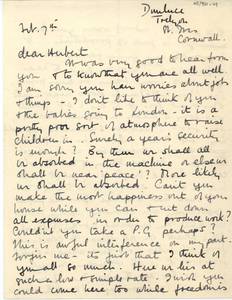 Dunluce
Cornwall.
Feb. 7th
dear Herbert
It was very good to hear from
you & to know that you are all well.
I am sorry you have worries about jobs
& things - I don't like to think of you
& the babies going to London - it is a
pretty poor sort of atmosphere to raise
children in. Surely a year's security
is enough? By then we shall all
be absorbed in the machine or else we
shall be near 'peace'? More likely
we shall be absorbed. Can't you
make the most happiness out of your
house while you can & cut down
all expenses in order to produce work?
Couldn't you take a P.G. perhaps?
This is awful interference on my part.
Forgive me - it's just that I think of
you all so much. Here we live at
such a low & simple rate. I wish you
could come here too while freedom is